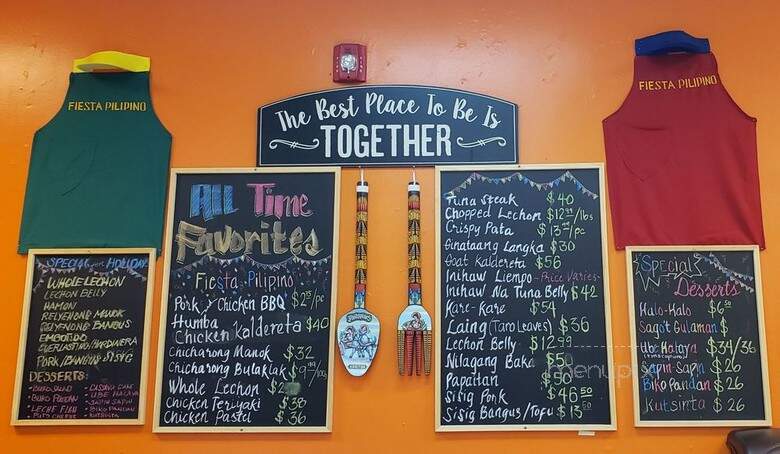 FIESTA PILIPINO
FIESTA PILIPINO
The Best Place To Be Is
TOGETHER
SPECIAL HOLIDAY
WHOLE LECHON
LECHON BELLY
HAMON
RELYENONG MANOK
RELYENONG BANGUS
EMBOTIDO
EVERLASTING/HARDINERA
PORK/BANGUS SISIG
DESSERTS:
- BUKO SALAD
- BUKO PANDAN
- LECHE FLAN
- CASAVA CAKE
- UBE HALAYA
- SAPIN SAPIN
- BIKO PANDAN
- KUTSINTA
All Time
Favorites
Fiesta Pilipino
Pork/Chicken BBQ $2.75/pc
Humba
Chicken Kaldereta $40
Chicharong Manok $32
Chicharong Bulaklak
Whole Lechon
Chicken Teriyaki $38
Chicken Pastel $36
Tuna Steak $40
Chopped Lechon /lbs
Crispy Pata /pc
Ginataang Langka $30
Goat Kaldereta $56
Inihaw Liempo -Price Varies-
Inihaw Na Tuna Belly $42
Kare-Kare $54
Laing (Taro Leaves) $36
Lechon Belly $12.99
Nilagang Baka
Papaitan $50
Sisig Pork $46.50
Sisig Bangus/Tofu $13
Special
Desserts
Halo-Halo $6.50
Sagot Gulaman $
Ube Halaya $34/36
Sapin-Sapin $26
Biko Pandan $26
Kutsinta $26